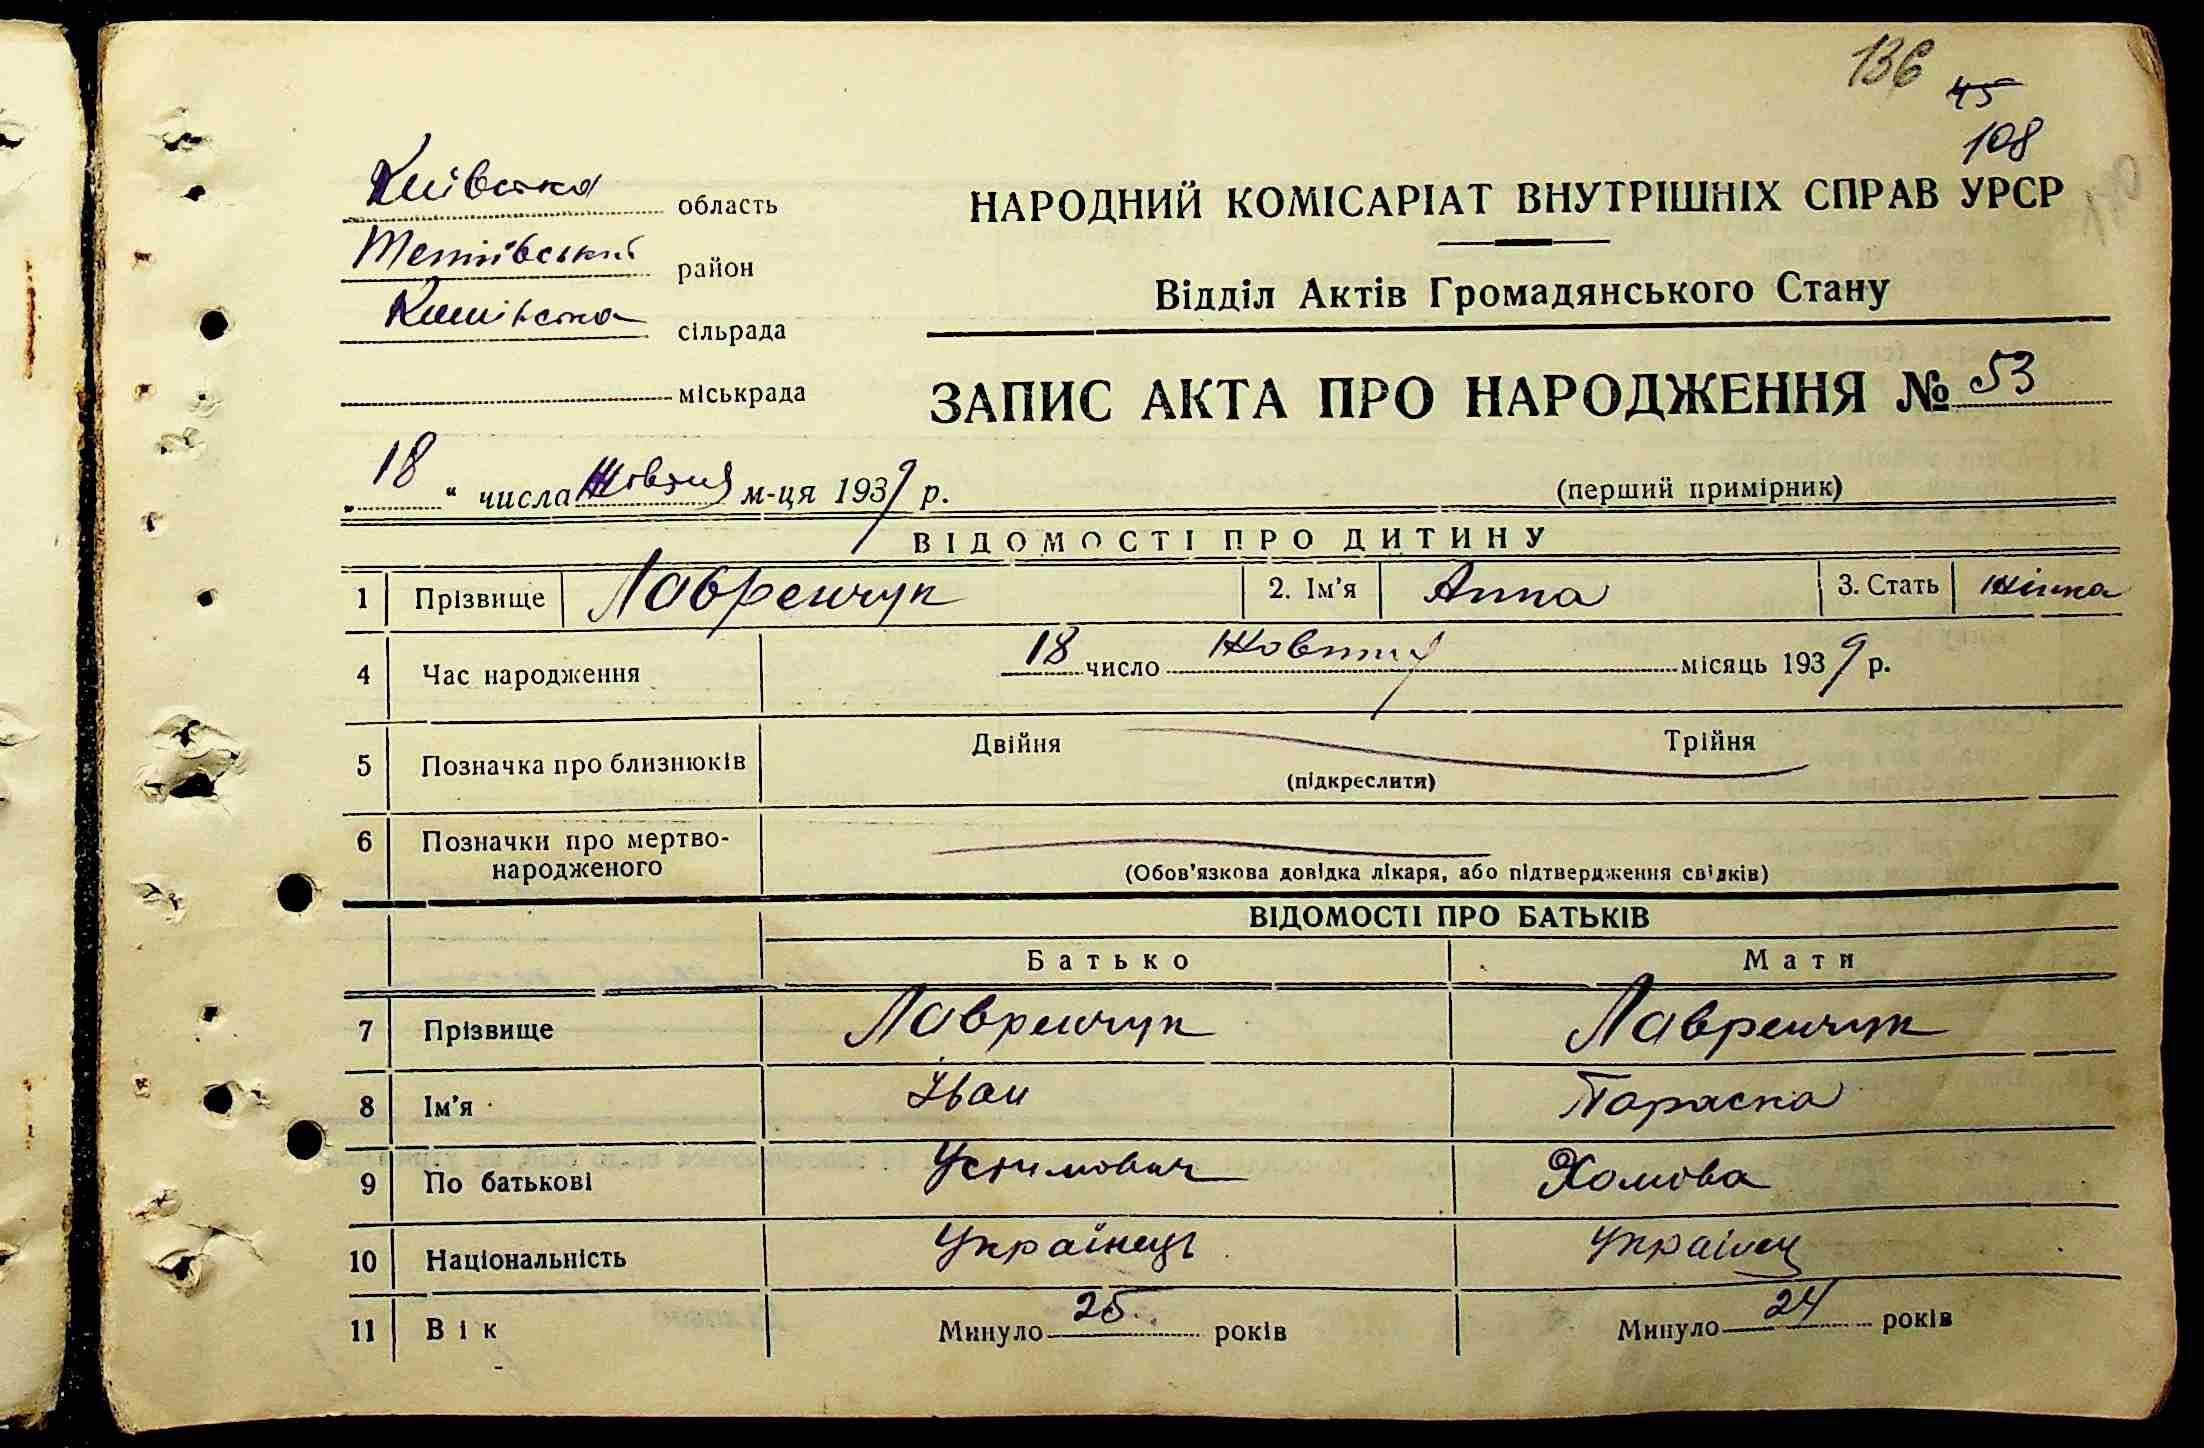 136
45
108
Київська область
Тетіївський район
сільрада
міськрада
НАРОДНИЙ КОМІСАРІАТ ВНУТРІШНІХ СПРАВ УРСР
Відділ Актів Громадянського Стану
ЗАПИС АКТА ПРО НАРОДЖЕННЯ № 53
„ 18 “ числа Жовтня м-ця 1939 р.
(перший примірник)
ВІДОМОСТІ ПРО ДИТИНУ
1 Прізвище Лавренчук 2. Ім'я Анна 3. Стать Жінка
4 Час народження 18 число Жовтня місяць 1939 р.
5 Позначка про близнюків Двійня Трійня
(підкреслити)
6 Позначки про мертво-
народженого
(Обов'язкова довідка лікаря, або підтвердження свідків)
ВІДОМОСТІ ПРО БАТЬКІВ
Батько Мати
7 Прізвище Лавренчук Лавренчук
8 Ім'я Іван Параска
9 По батькові Устимович Хомова
10 Національність Українець Українец
11 Вік Минуло 25 років Минуло 24 років